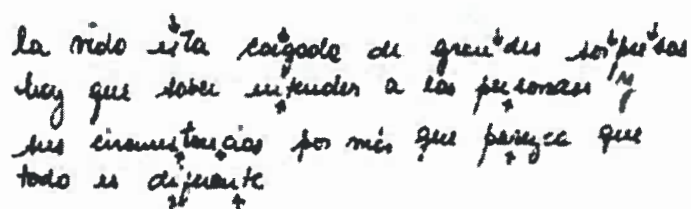 la vida esta cargada de grandes sorpresas
hay que saber entender a las personas y
sus circunstancias por más que parezca que
todo es diferente